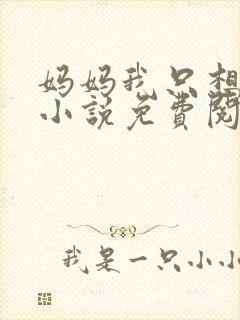 妈妈我只想
小说免费阅
我是一只小小